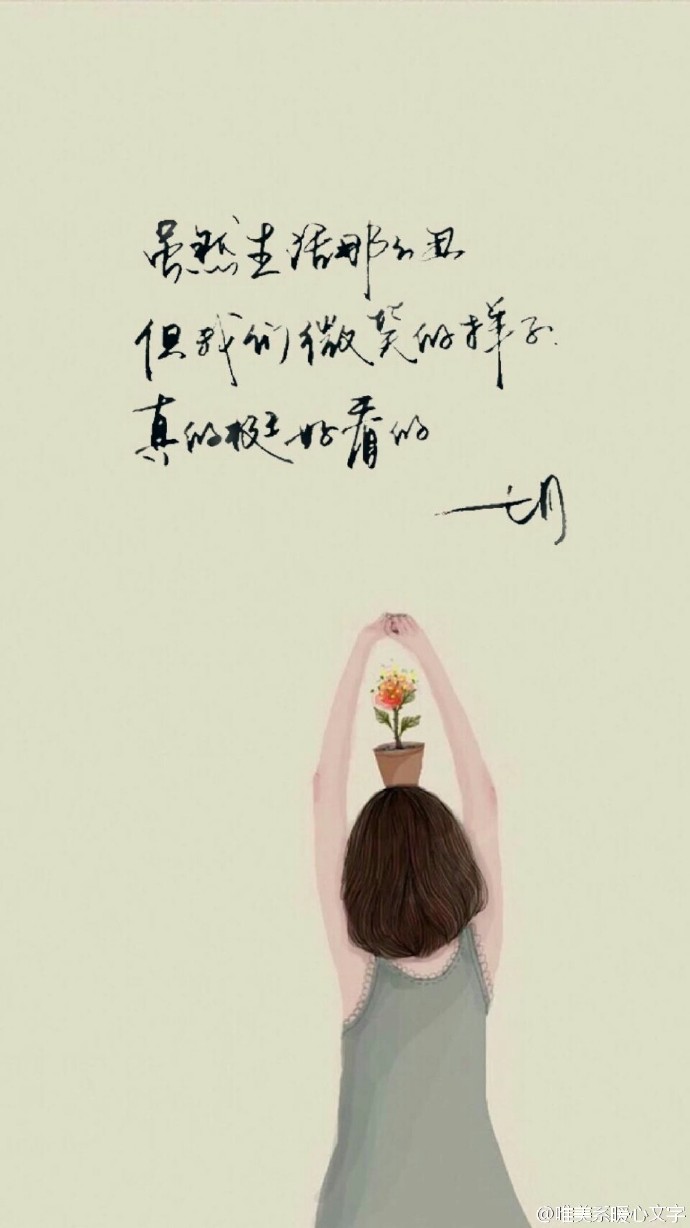 虽然生活那么丑
但我们微笑的样子
真的挺好看的
——七月
@唯美系暖心文字